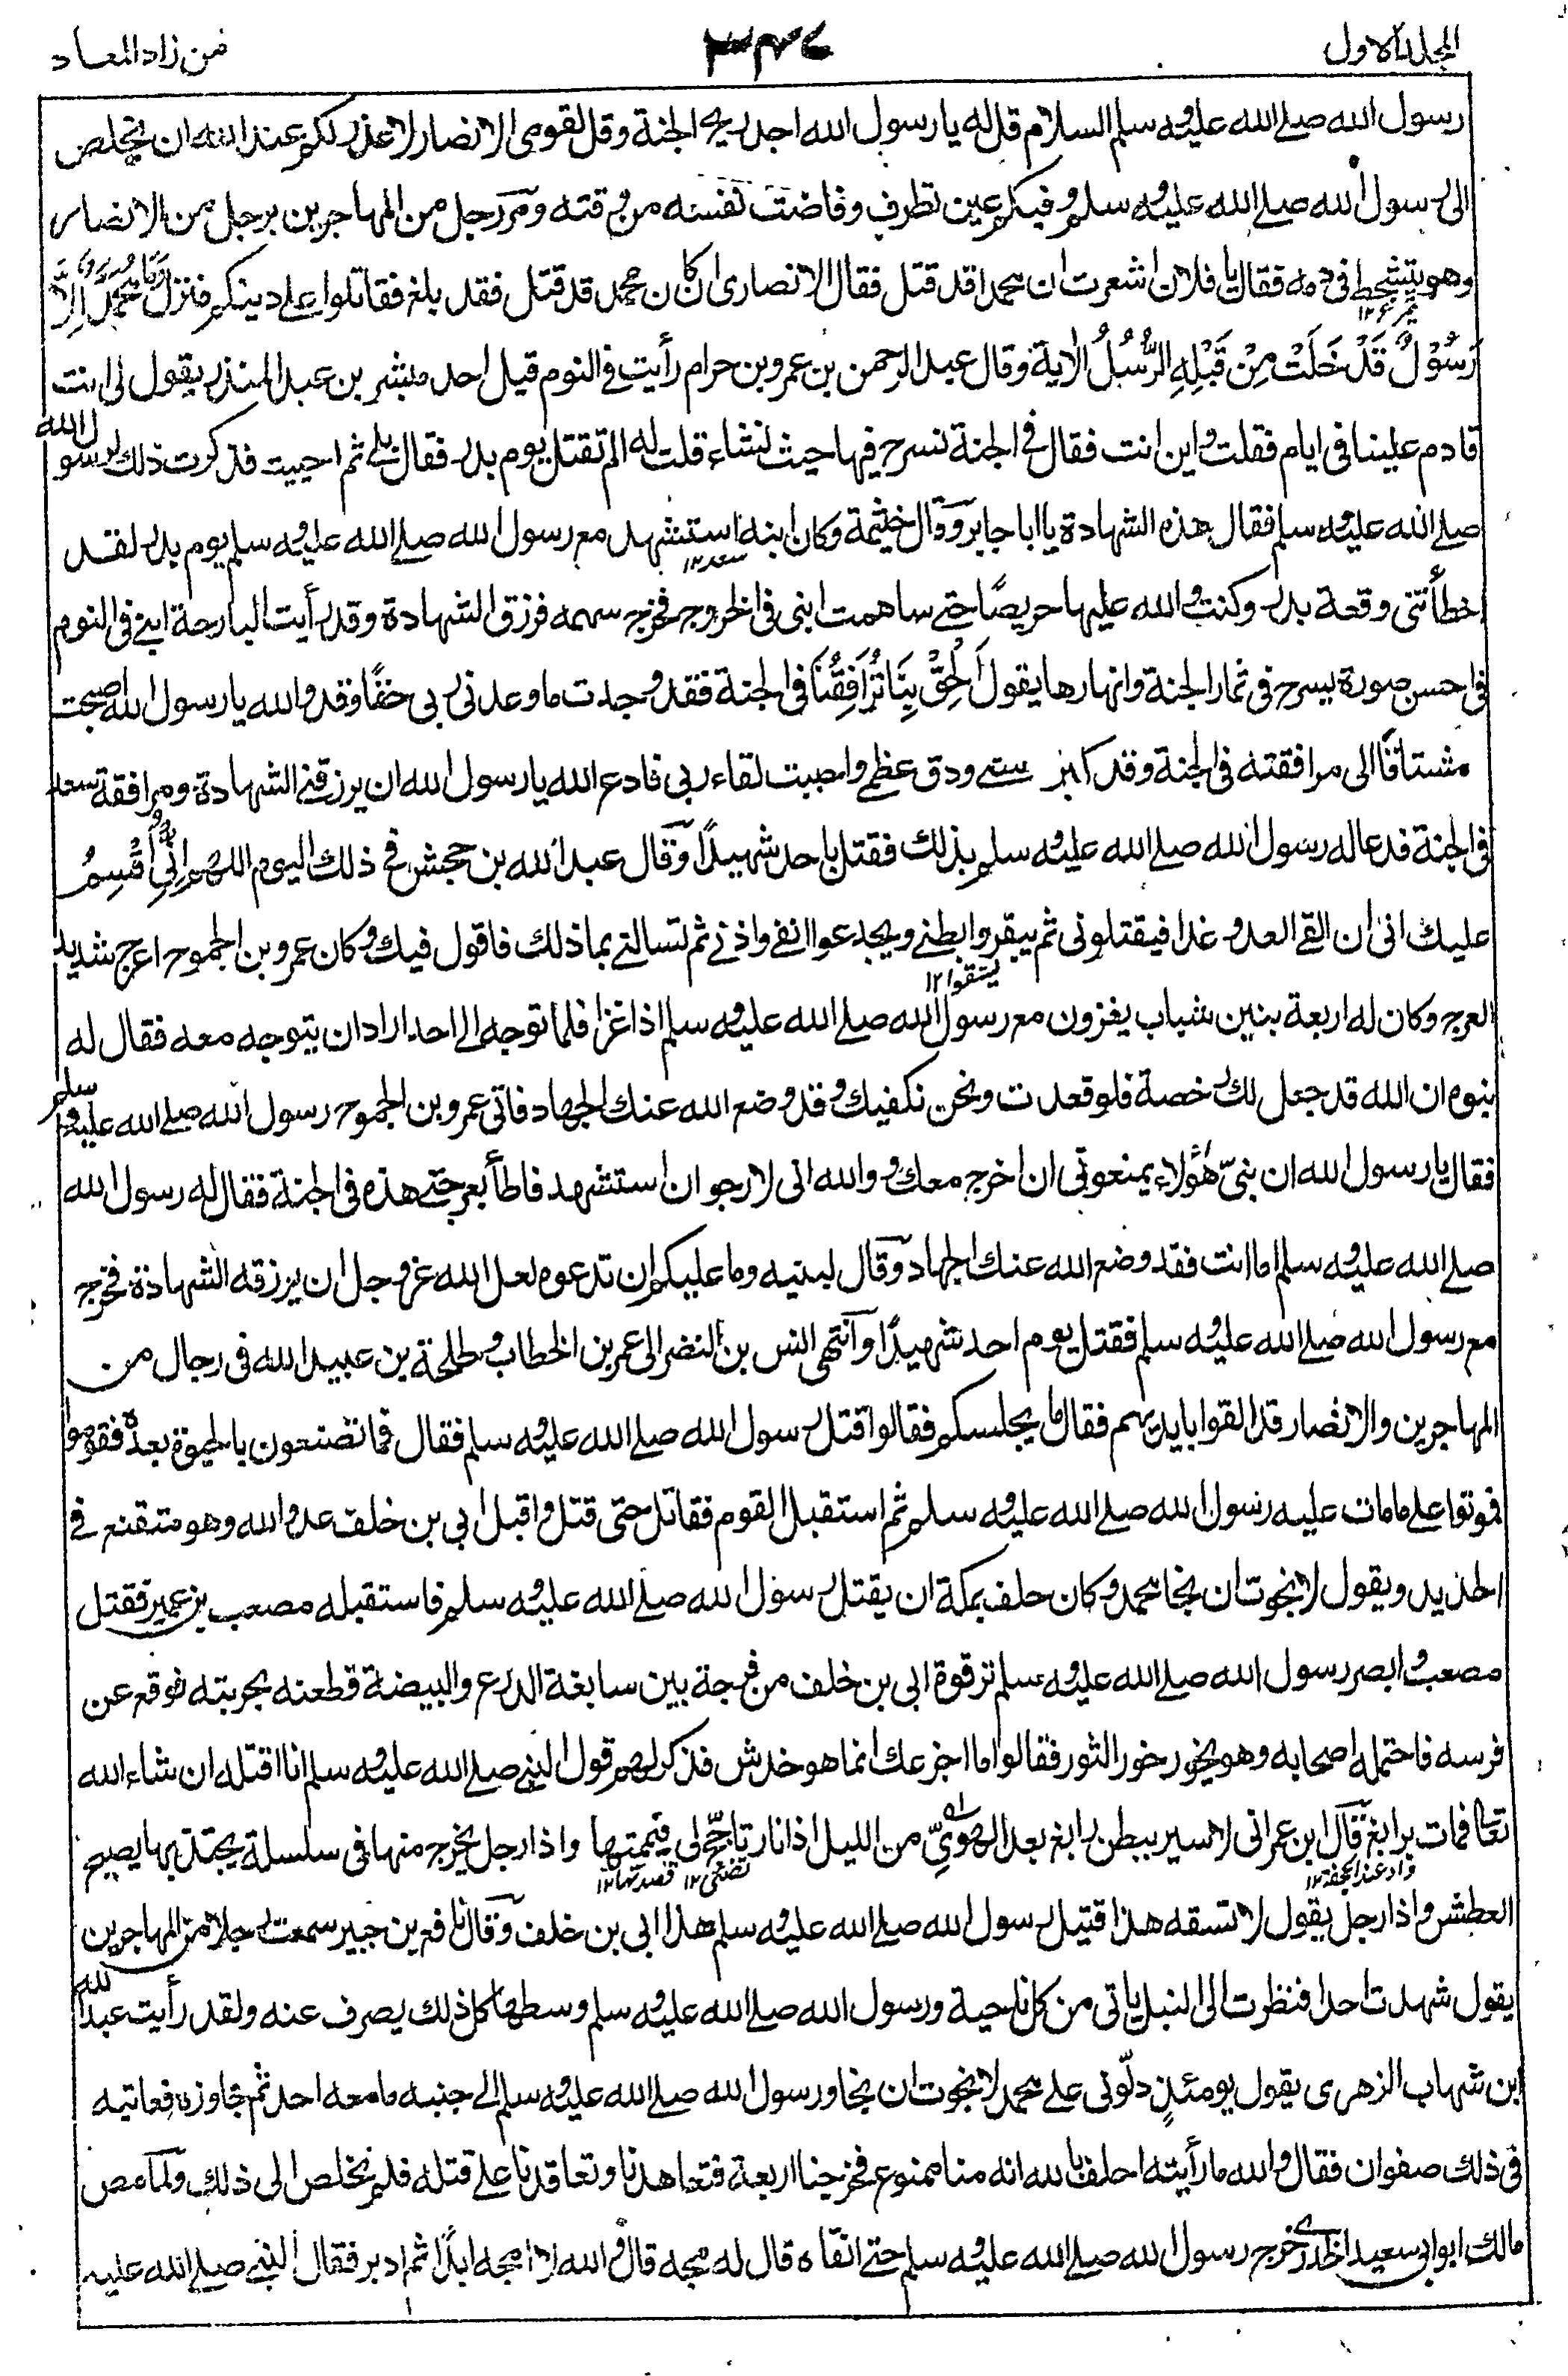 المجلد الاول
٣٤٦
من زاد المعاد
رسول الله صلى الله عليه وسلم السلام قل له يا رسول الله اجد ريح الجنة وقل لقومى الانصار لا عذر لكم عند الله ان يخلص
الى رسول الله صلى الله عليه وسلم وفيكم عين تطرف وفاضت نفسه من وقته ومر رجل من المهاجرين برجل من الانصار
وهو يتشحط فى دمه فقال يا فلان اشعرت ان محمدا قد قتل فقال الانصارى ان كان محمد قد قتل فقد بلغ فقاتلوا على دينكم فنزل وَمَا مُحَمَّدٌ اِلَّا
رَسُوْلٌ قَدْ خَلَتْ مِنْ قَبْلِهِ الرُّسُلُ الاية وقال عبد الرحمن بن عمرو بن حرام رأيت فى النوم قبل احد مبشر بن عبد المنذر يقول لى انت
قادم علينا فى ايام فقلت واين انت فقال فى الجنة نسرح فيها حيث نشاء قلت له الم تقتل يوم بدر فقال بلى ثم احييت فذكرت ذلك لرسول الله
صلى الله عليه وسلم فقال هذه الشهادة يا ابا جابر وقال خثيمة وكان ابنه استشهد مع رسول الله صلى الله عليه وسلم يوم بدر لقد
سعد ١٢
اخطأتنى وقعة بدر وكنت والله عليها حريصًا حتى ساهمت ابنى فى الخروج فخرج سهمه فرزق الشهادة وقد رأيت البارحة ابنى فى النوم
فى احسن صورة يسرح فى ثمار الجنة وانهارها يقول اَلْحِقْ بِنَا تُرَافِقُنَا فى الجنة فقد وجدت ما وعدنى ربى حقًا وقد والله يا رسول الله اصبحت
مشتاقًا الى مرافقته فى الجنة وقد كبر سنى ودق عظمى واحببت لقاء ربى فادع الله يا رسول الله ان يرزقنى الشهادة ومرافقة سعد
فى الجنة فدعا له رسول الله صلى الله عليه وسلم بذلك فقتل باحد شهيدًا وقال عبد الله بن جحش فى ذلك اليوم اللهم اِنِّى اُقْسِمُ
عليك انى ان القى العدو غدا فيقتلونى ثم يبقروا بطنى ويجدعوا انفى واذنى ثم تسالنى بما ذلك فاقول فيك وكان عمرو بن الجموح اعرج شديد
يشقوا ١٢
العرج وكان له اربعة بنين شباب يغزون مع رسول الله صلى الله عليه وسلم اذا غزا فلما توجه الى احد اراد ان يتوجه معه فقال له
بنوه ان الله قد جعل لك رخصة فلو قعدت ونحن نكفيك وقد وضع الله عنك الجهاد فاتى عمرو بن الجموح رسول الله صلى الله عليه وسلم
فقال يا رسول الله ان بنىّ هؤلاء يمنعونى ان اخرج معك و والله انى لارجو ان استشهد فاطأ بعرجتى هذه فى الجنة فقال له رسول الله
صلى الله عليه وسلم اما انت فقد وضع الله عنك الجهاد وقال لبنيه وما عليكم ان تدعوه لعل الله عز وجل ان يرزقه الشهادة فخرج
مع رسول الله صلى الله عليه وسلم فقتل يوم احد شهيدًا وانتهى انس بن النضر الى عمر بن الخطاب وطلحة بن عبيد الله فى رجال من
المهاجرين والانصار قد القوا بايديهم فقال ما يجلسكم فقالوا قتل رسول الله صلى الله عليه وسلم فقال فما تصنعون بالحيوة بعده فقوموا
فموتوا على ما مات عليه رسول الله صلى الله عليه وسلم ثم استقبل القوم فقاتل حتى قتل واقبل ابى بن خلف عدو الله وهو متقنع فى
الحديد ويقول لا نجوت ان نجا محمد وكان حلف بمكة ان يقتل رسول الله صلى الله عليه وسلم فاستقبله مصعب بن عمير فقتل
مصعب وابصر رسول الله صلى الله عليه وسلم ترقوة ابى بن خلف من فرجة بين سابغة الدرع والبيضة فطعنه بحربته فوقع عن
فرسه فاحتمله اصحابه وهو يخور خور الثور فقالوا ما اجزعك انما هو خدش فذكر لهم قول النبى صلى الله عليه وسلم انا اقتله ان شاء الله
تعالى فمات برابغ قال ابن عمر انى لاسير ببطن رابغ بعد الهوىّ من الليل اذا نار تاجّج لى فيممتها واذا رجل يخرج منها فى سلسلة يجتذبها يصيح
واد عند الجحفة ١٢ تضئى ١٢ قصدتها ١٢
العطش واذا رجل يقول لا تسقه هذا قتيل رسول الله صلى الله عليه وسلم هذا ابى بن خلف وقال نافع بن جبير سمعت رجلا من المهاجرين
يقول شهدت احدا فنظرت الى النبل ياتى من كل ناحية ورسول الله صلى الله عليه وسلم وسطها كل ذلك يصرف عنه ولقد رأيت عبد الله
ابن شهاب الزهرى يقول يومئذٍ دلّونى على محمد لا نجوت ان نجا ورسول الله صلى الله عليه وسلم الى جنبه ما معه احد ثم جاوزه فعاتبه
فى ذلك صفوان فقال والله ما رأيته احلف بالله انه منا ممنوع فخرجنا اربعة فتعاهدنا وتعاقدنا على قتله فلم نخلص الى ذلك ولما مص
مالك ابو ابى سعيد الخدرى جرح رسول الله صلى الله عليه وسلم حتى انقاه قال له مجه قال والله لا امجه ابدًا ثم ادبر فقال النبى صلى الله عليه